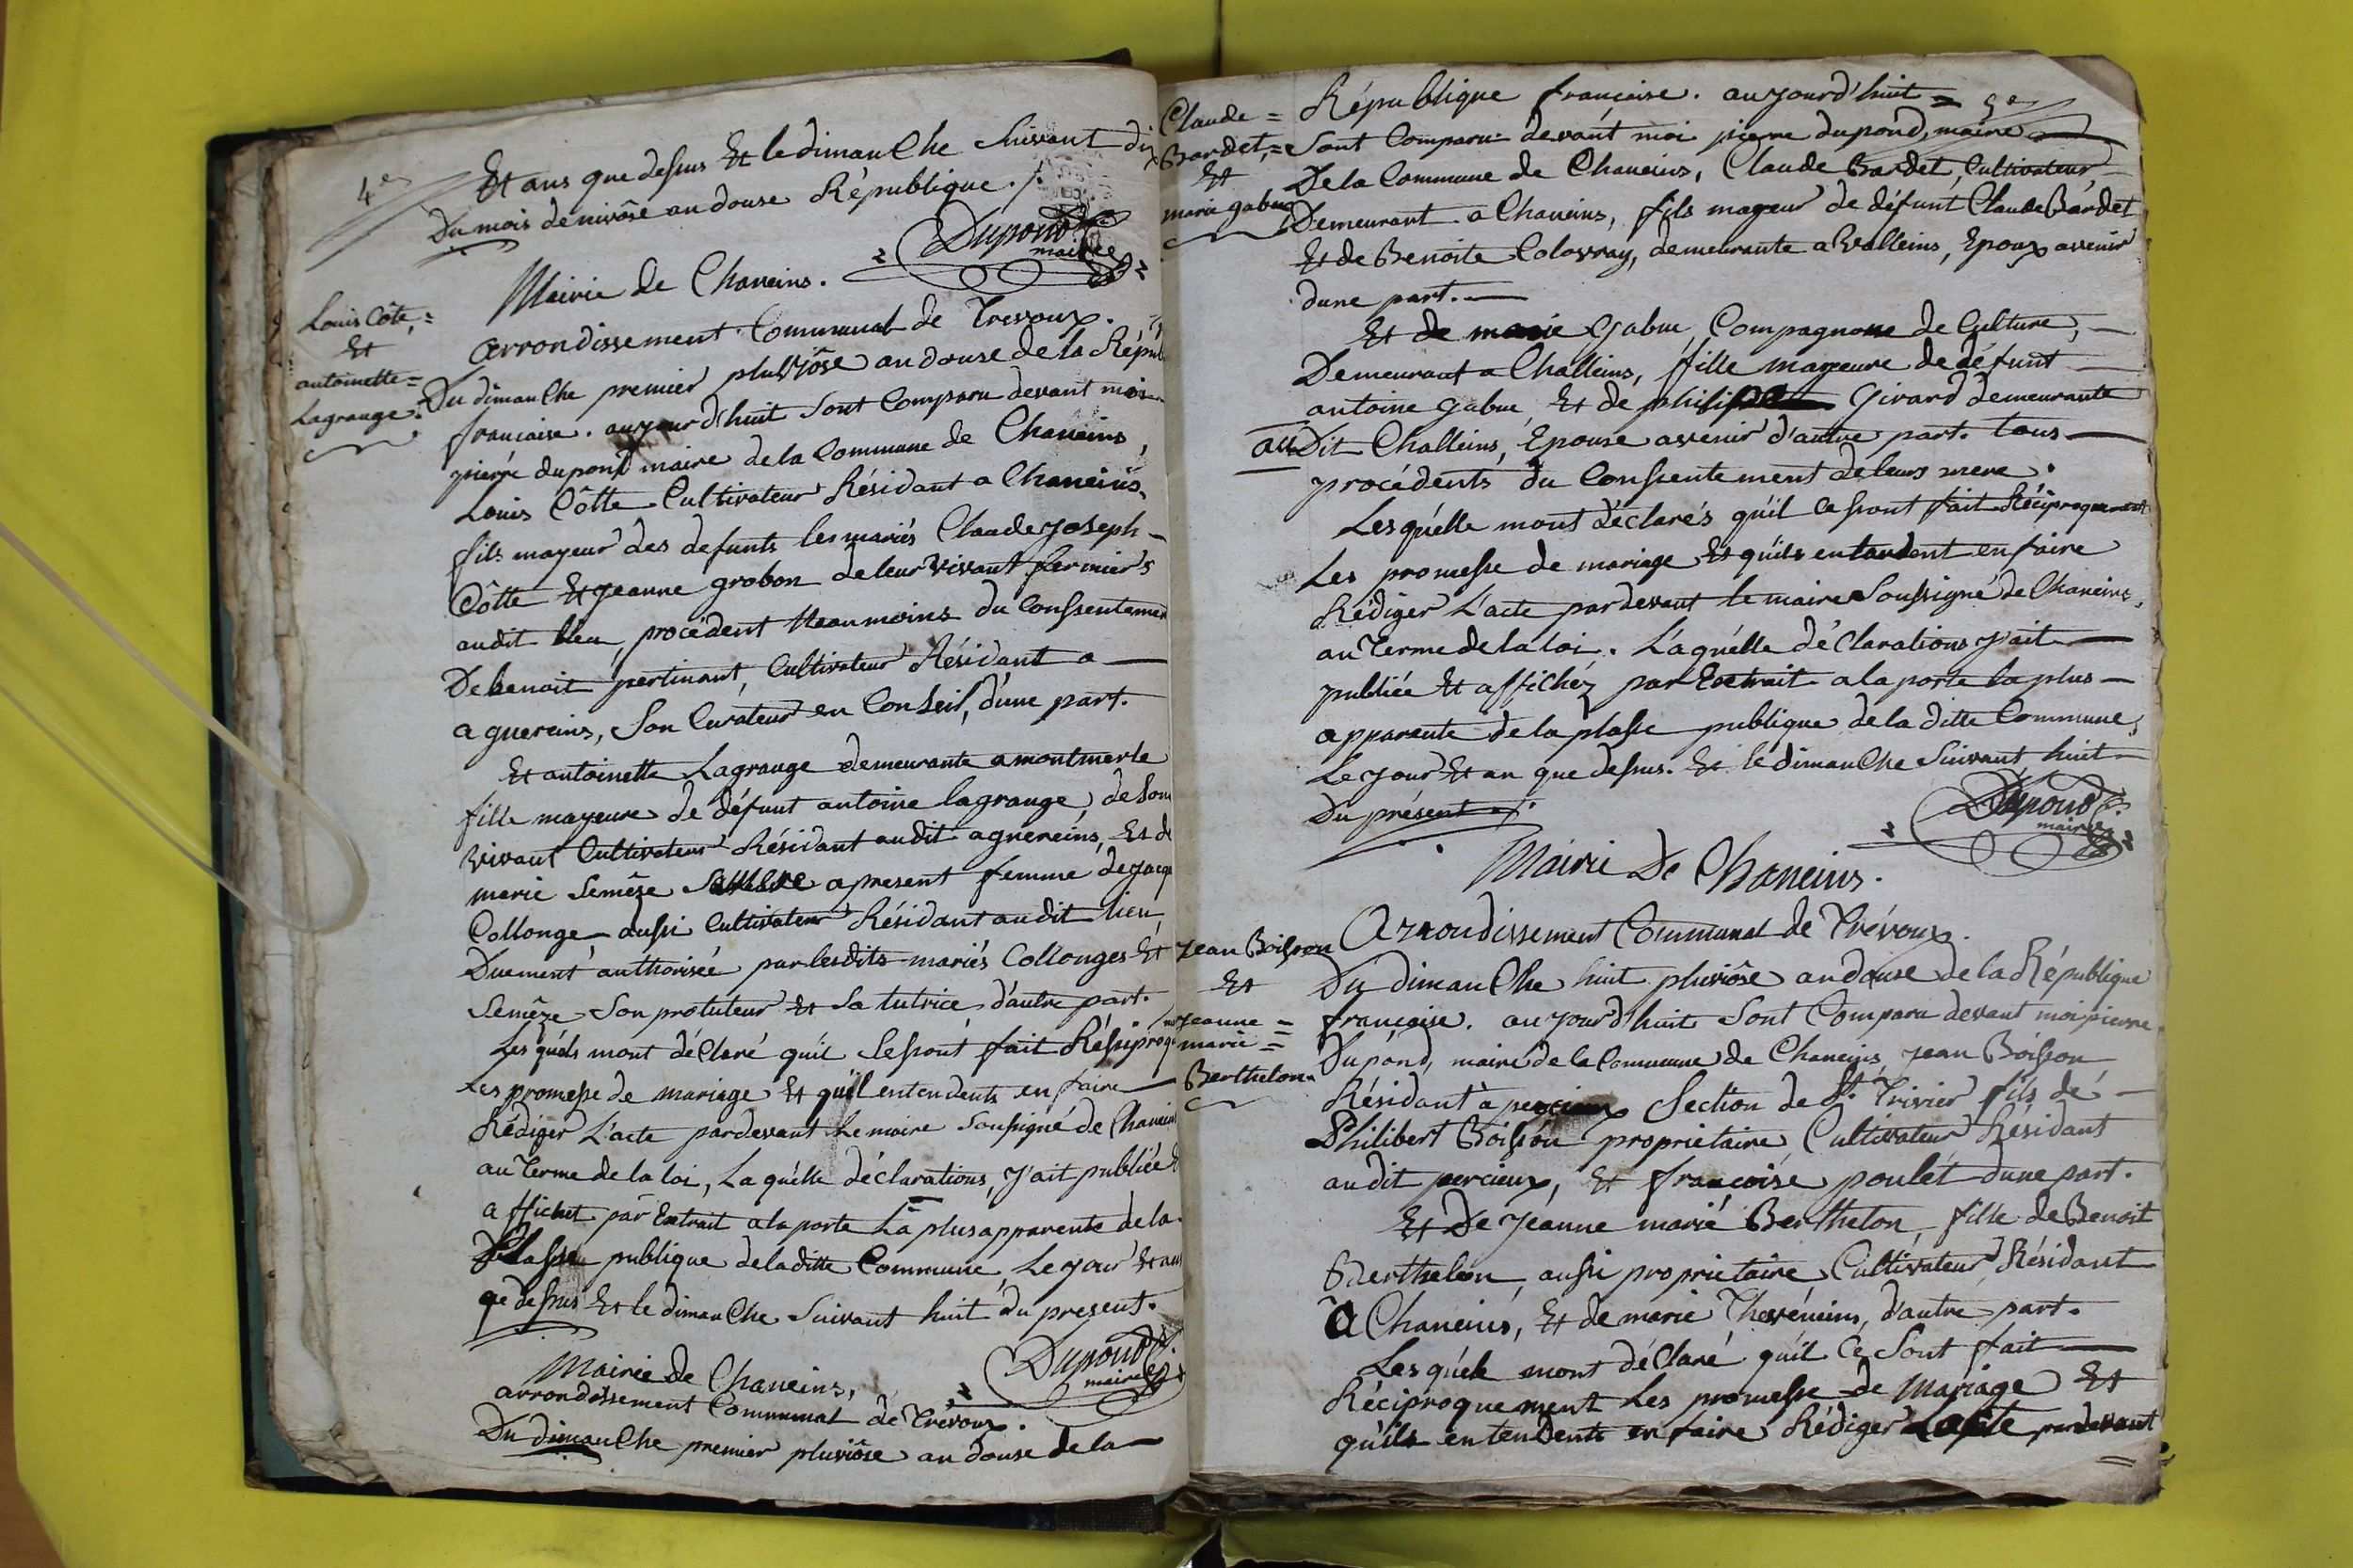 4e
Et ans que dessus Et le dimanChe Suivant
Du mois de nivôse an douse République ./.
Dupond
maire
Mairie de Chaneins.
Louis Côte, =
Et
antoinette =
Lagrange.
arrondissement Communal de Trevoux.
Du dimanChe premier pluviôse an douse de la Répub
francaise. aujourd'huit Sont Comparu devant moi
pierre dupond maire de la Commune de Chaneins,
Louis Côtte Cultivateur Résidant a Chaneins.
fils mayeur des defunts les mariés Claude Joseph -
Côtte Et Jeanne grobon de leur vivant fermiers
audit lieu, procédent Neanmoins du Consentemen
De benoit pertinant, Cultivateur Résidant a —
aguereins, Son Curateur en Conseil, d'une part.
Et antoinette Lagrange demeurante a montmerle
fille mayeure de défunt antoine lagrange, de Son
vivant Cultivateur Résidant audit aguereins, Et de
marie Semêze apresent femme de Jacq
Collonge aussi Cultivateur Résidant audit lieu
Duement authorisée par lesdits mariés Collonges Et
Semêze Son protuteur Et Sa tutrice d'autre part.
Les quéls mont déClaré quil Se sont fait Réssiproq
Les promesse de mariage Et qu'il entendents en faire —
Rédiger L'acte pardevant Le maire Soussigné de Chanein
au Terme de la loi, La quélle déclarations, J'ait publiée
affichet par Extrait a la porte La plus apparente de la
Plasse publique de la ditte Commune, Le jour Et an
qe dessus Et le dimanChe Suivant huit du present.
Dupond
maire
Mairie de Chaneins,
arrondissement Communal de Trévoux.
Du dimanChe premier pluviôse an douse de la —
Claude =
Bardet, =
Et
marie gabue
République francaise. aujourd'huit = 5e
Sont Comparu devant moi pierre dupond, maire
De la Commune de Chaneins, Claude Bardet, Cultivateur
Demeurant a Chaneins, fils mayeur de défunt Claude Bardet
Et de Benoite Colovray, demeurante a Valleins, Epoux avenir
dune part. —
Et de marie Gabue, Compagnone de Culture, —
Demeurant a Challeins, fille mayeure de défunt —
antoine gabue, Et de Girard demeurante
au Dit Challeins, Epouse avenir d'autre part. tous —
procédents du Consentement de leurs mere.
Les quélle mont déclarés qu'il ce sont fait Réciproquement
Les promesse de mariage Et qu'ils entandent en faire
Rédiger L'acte pardevant le maire Soussigné de Chaneins,
au Terme de la loi. L'aquélle déClarations J'ait —
publiée Et affichéz par Extrait a la porte la plus —
apparente de la plasse publique de la ditte Commune,
Le jour Et an que dessus. Et le dimanChe Suivant huit
Du présent ./.
Dupond
maire
Mairie De Chaneins.
Jean Boisson
Et
Jeanne =
marie =
Berthelon
Arrondissement Communal de Trévoux.
Du dimanChe huit pluviôse an douse de la République
francaise. aujourd'huit Sont Comparu devant moi pierre
Dupond, maire de la Commune de Chaneins, Jean Boisson
Résidant à Section de St. Trivier fils de —
Philibert Boisson propriétaire Cultivateur Résidant
audit percieux, Et francoise poulét dune part.
Et De Jéanne marié Berthelon, fille de Benoit
Bertheleon aussi proprietaire Cultivateur Résidant
A Chaneins, Et de marie Thevénins, d'autre part.
Lesquéls mont déClaré qu'il Ce Sont fait —
Réciproquement Les promesse de Mariage Et
qu'ils entendents en faire Rédiger Lacte pardevant